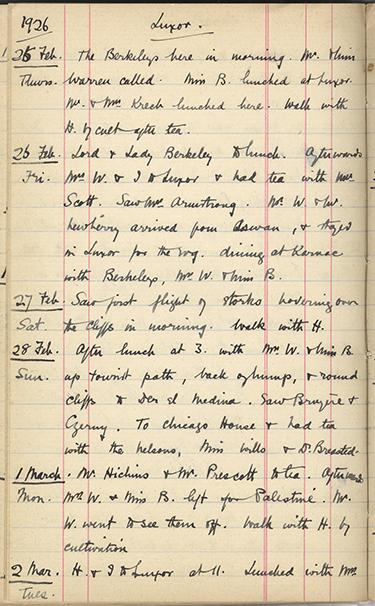 1926 Luxor.
25 Feb. The Berkeleys here in morning. Mr. & Mrs
Thurs. Warren called. Miss B. lunched at Luxor.
Mr. & Mrs Krech lunched here. Walk with
H. by cult after tea.
26 Feb. Lord & Lady Berkeley to lunch. Afterwards
Fri. Mrs W. & I to Luxor & had tea with Mrs
Scott. Saw Mrs Armstrong. Mr. W. & Mr.
Newberry arrived from Aswan, & stayed
in Luxor for the evg. dining at Karnac
with Berkeleys, Mrs W. & Miss B.
27 Feb. Saw first flight of storks hovering over
Sat. the cliffs in morning. Walk with H.
28 Feb. After lunch at 3. with Mrs W. & Miss B.
Sun. up tourist path, back of hump, & round
cliffs to Der el Medina. Saw Bruyère &
Czerny. To Chicago House & had tea
with the Nelsons, Miss Wills & Dr. Breasted.
1 March. Mr Hichins & Mr. Prescott to tea. Afterwards
Mon. Mrs W. & Miss B. left for Palestine. Mr.
W. went to see them off. Walk with H. by
cultivation
2 Mar. H. & I to Luxor at 11. Lunched with Mrs
Tues.